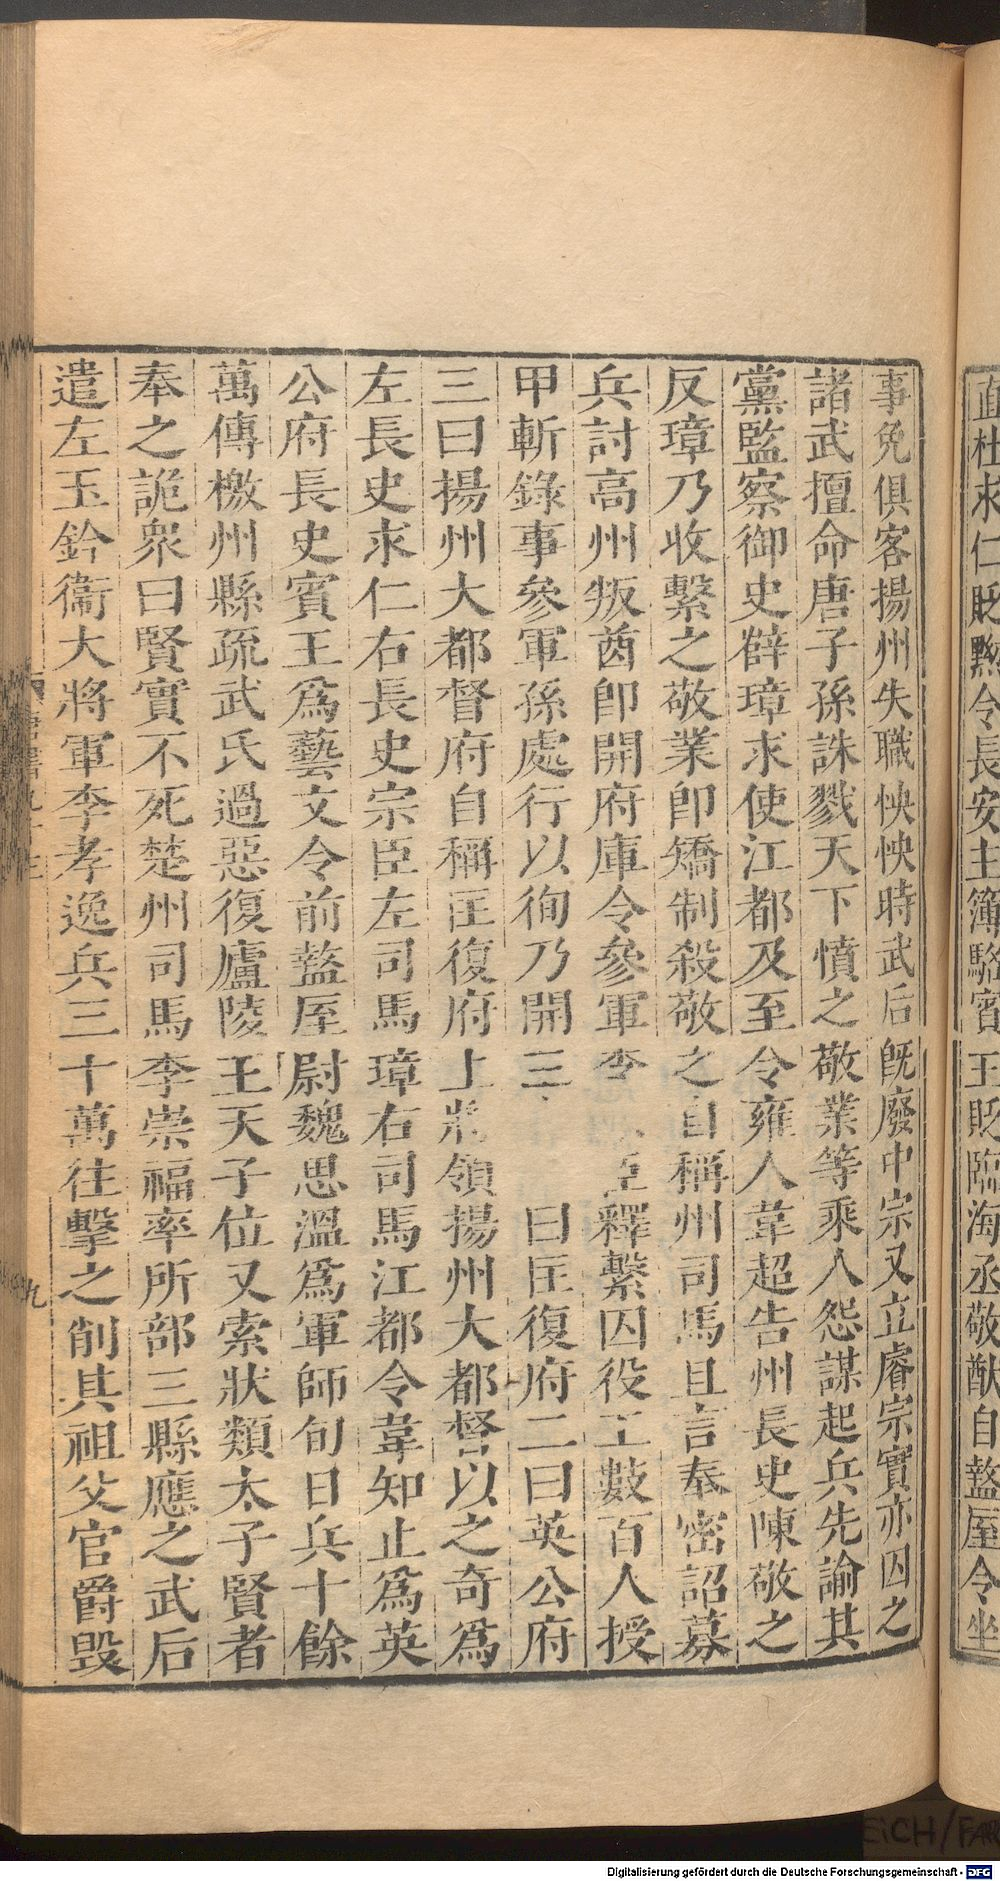 直杜求仁貶黟令長安主簿駱賓王貶臨海丞敬猷自盩厔令坐
事免俱客揚州失職怏怏時武后旣廢中宗又立睿宗實亦囚之
諸武擅命唐子孫誅戮天下憤之敬業等乘人怨謀起兵先諭其
黨監察御史薛璋求使江都及至令雍人韋超告州長史陳敬之
反璋乃收繫之敬業卽矯制殺敬之自稱州司馬且言奉密詔募
兵討高州叛酋卽開府庫令參軍李 臣釋繫囚役工數百人授
甲斬錄事參軍孫處行以徇乃開三 曰匡復府二曰英公府
三曰揚州大都督府自稱匡復府上將領揚州大都督以之奇爲
左長史求仁右長史宗臣左司馬璋右司馬江都令韋知止爲英
公府長史賓王爲藝文令前盩厔尉魏思溫爲軍師旬日兵十餘
萬傳檄州縣疏武氏過惡復廬陵王天子位又索狀類太子賢者
奉之詭衆曰賢實不死楚州司馬李崇福率所部三縣應之武后
遣左玉鈐衞大將軍李孝逸兵三十萬往擊之削其祖父官爵毀
九
EICH/FAR
Digitalisierung gefördert durch die Deutsche Forschungsgemeinschaft - DFG